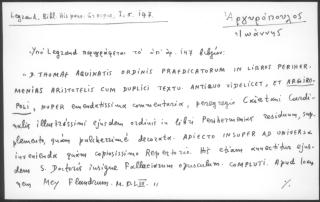 Legrand, Bibl. Hispano-Grecque, I, σ. 147.
Ἀργυρόπουλος
Ἰωάννης
Ὑπὸ Legrand περιγράφεται τὸ ὑπ' ἀρ. 147 βιβλίον:
"D. THOMAE AQUINATIS ORDINIS PRAEDICATORUM IN LIBROS PERIHER-
MENIAS ARISTOTELIS CUM DUPLICI TEXTU ANTIQUO VIDELICET, ET ARGIRO-
POLI, nuper emendatissima commentaria, peregregio Caietani Cardi-
nalis illustrissimi ejusdem ordinis in libri Perihermenias residuum, sup-
plemento, quam pulcherrime decorata. ADIECTO INSUPER AD UNIVERSA
invenienda quam copiosissimo Repertorio. His etiam annectitur ejus-
dem S. Doctoris insigne Fallaciarum opusculum. COMPLUTI. Apud Joan-
nem Mey Flandrum. M.D.L